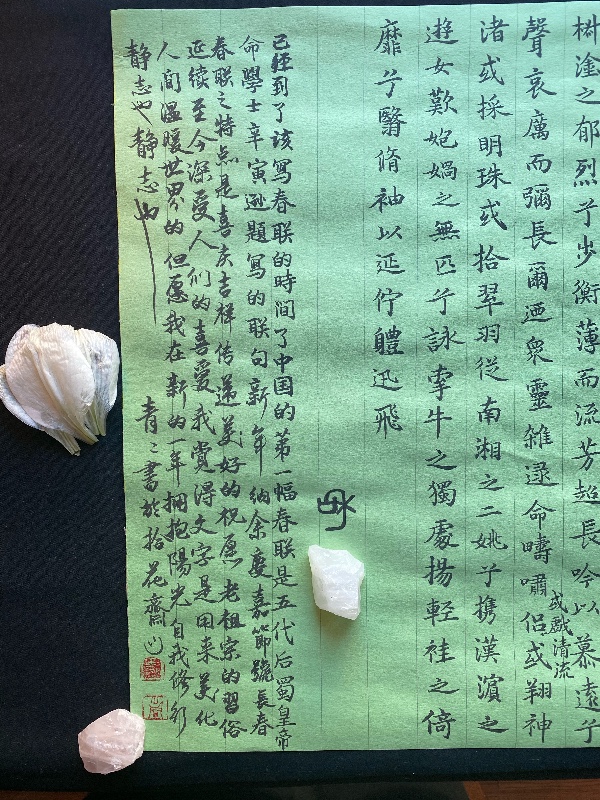 椒塗之郁烈兮步衡薄而流芳超長吟以慕遠兮
聲哀厲而彌長爾迺衆靈雜遝命疇嘯侶或翔神
或戲清流
渚或採明珠或拾翠羽從南湘之二姚兮携漢濱之
遊女歎匏媧之無匹兮詠牽牛之獨處揚輕袿之倚
靡兮翳脩袖以延佇體迅飛
已經到了该寫春联的時间了中国的第一幅春联是五代后蜀皇帝
命學士辛寅逊題寫的联句新年纳余慶嘉節號長春
春联之特点是喜庆吉祥传递美好的祝愿老祖宗的習俗
延续至今深受人们的喜爱我觉得文字是用来美化
人间温暖世界的但愿我在新的一年拥抱陽光自我修行
静志也静志也
青二書於拾花齋